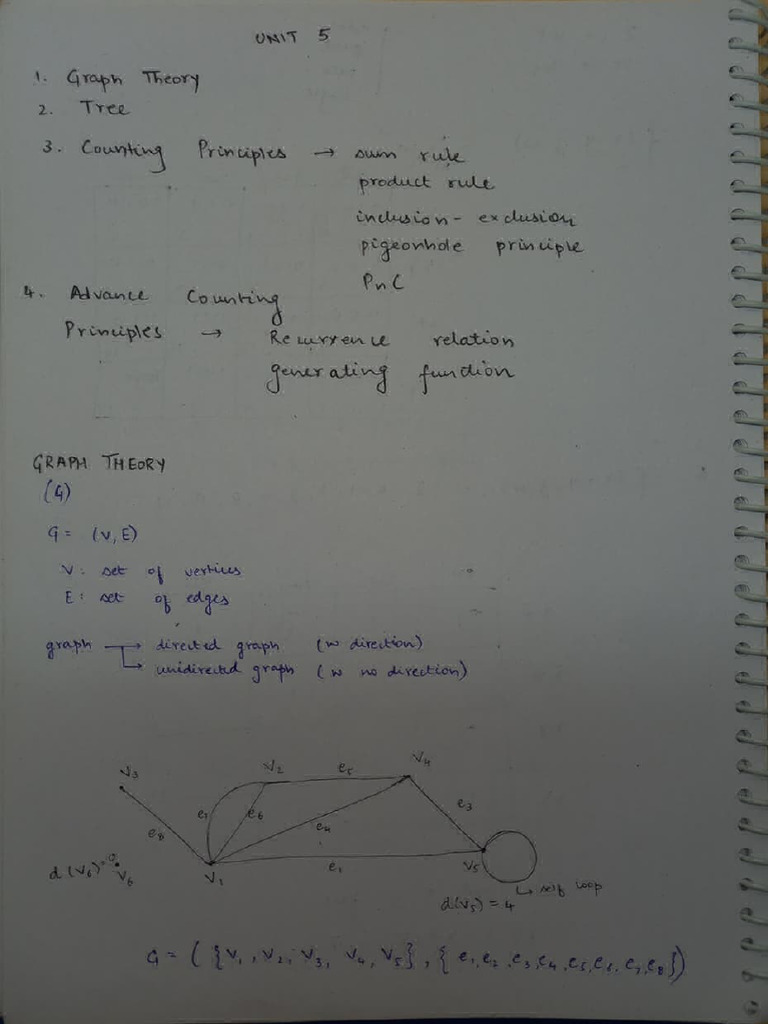 UNIT 5
1. Graph Theory
2. Tree
3. Counting Principles → sum rule
product rule
inclusion - exclusion
pigeonhole principle
PnC
4. Advance Counting
Principles → Recurrence relation
generating function
GRAPH THEORY
(G)
G = (V, E)
V : set of vertices
E : set of edges
graph → directed graph (w direction)
→ unidirected graph (w no direction)
V3
V2
e5
V4
e7
e6
e3
e8
e4
d(V6) = 0
V6
V1
e1
V5
↳ self loop
d(V5) = 4
G = ( {V1, V2, V3, V4, V5}, { e1, e2, e3, e4, e5, e6, e7, e8 })